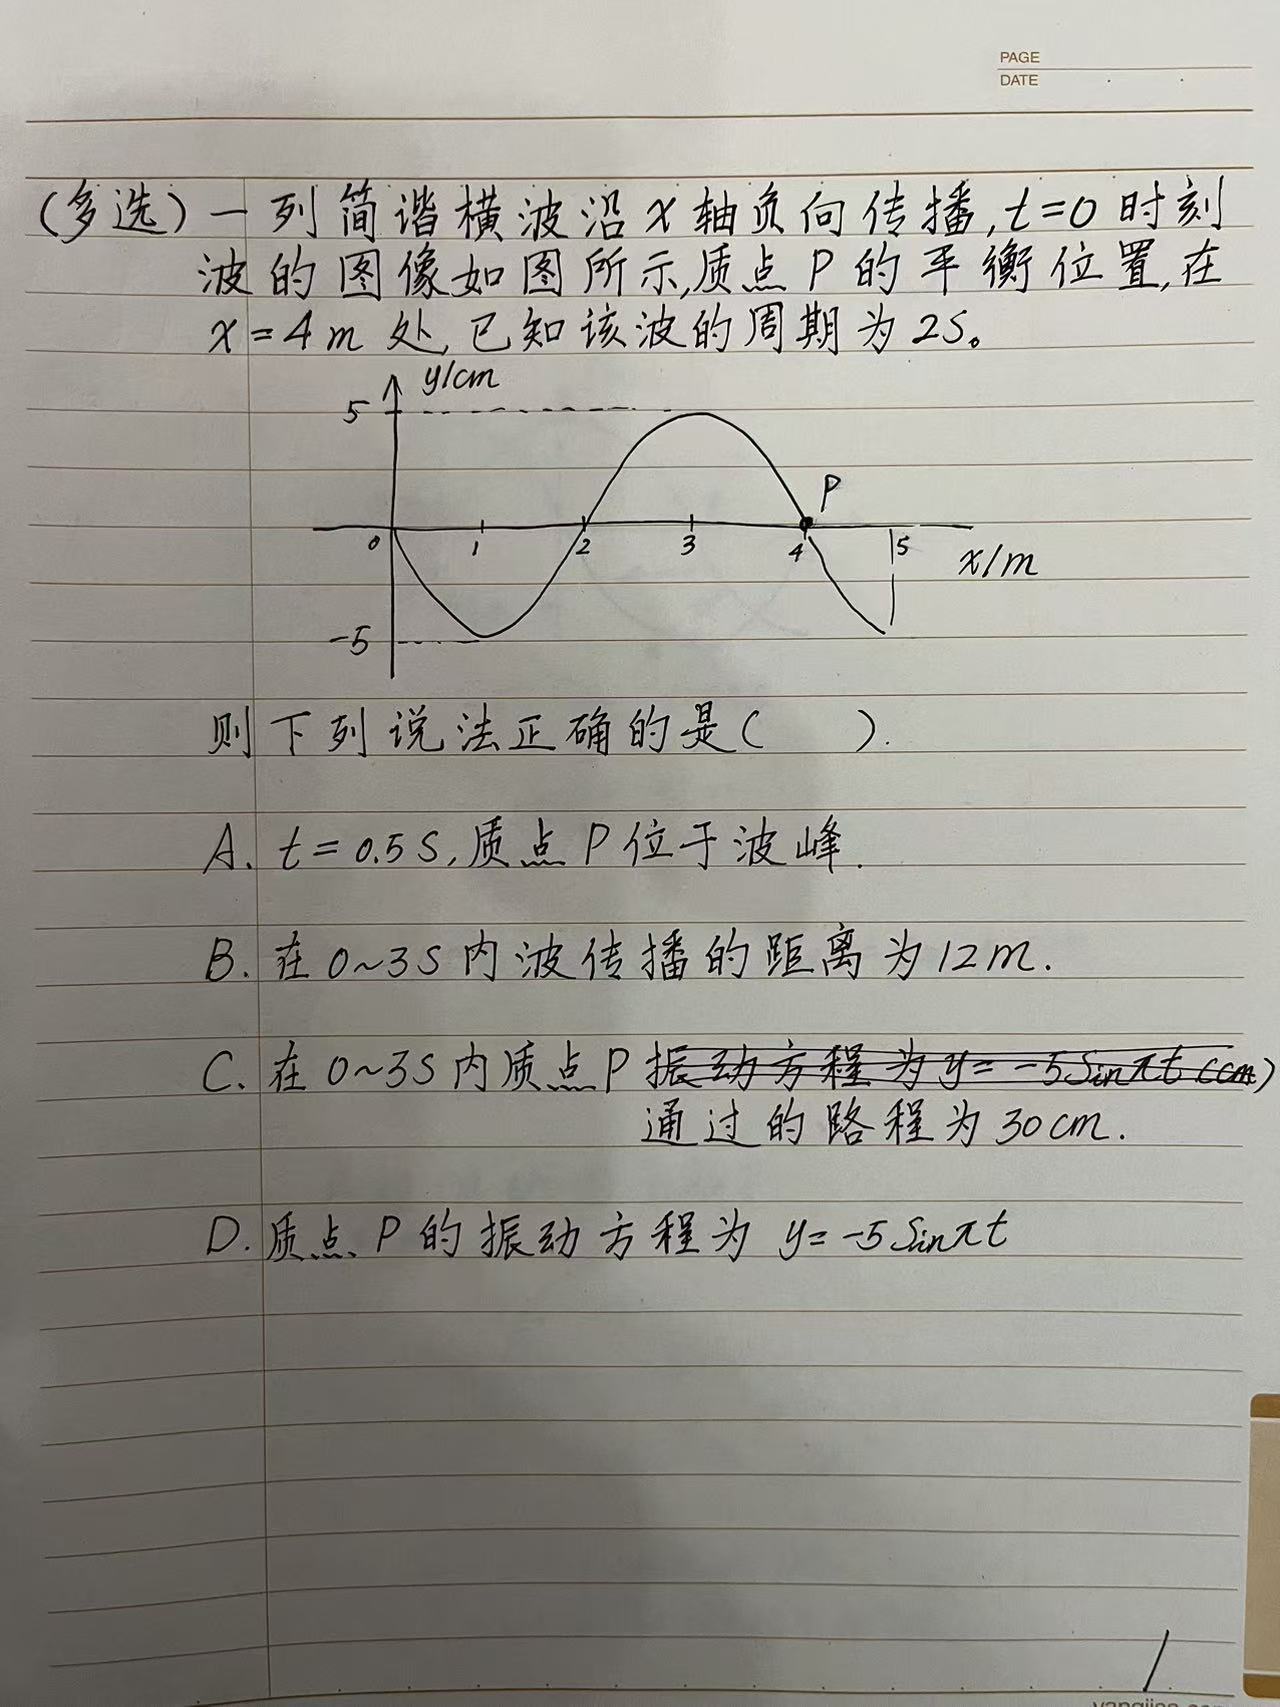 PAGE
DATE
(多选)一列简谐横波沿x轴负向传播,t=0时刻
波的图像如图所示,质点P的平衡位置,在
x=4m处,已知该波的周期为2S。
y/cm
5
P
0 1 2 3 4 5
x/m
-5
则下列说法正确的是( ).
A. t=0.5S,质点P位于波峰.
B. 在0~3S内波传播的距离为12m.
C. 在0~3S内质点P振动方程为y=-5Sinπt(cm)
通过的路程为30cm.
D. 质点P的振动方程为 y=-5Sinπt